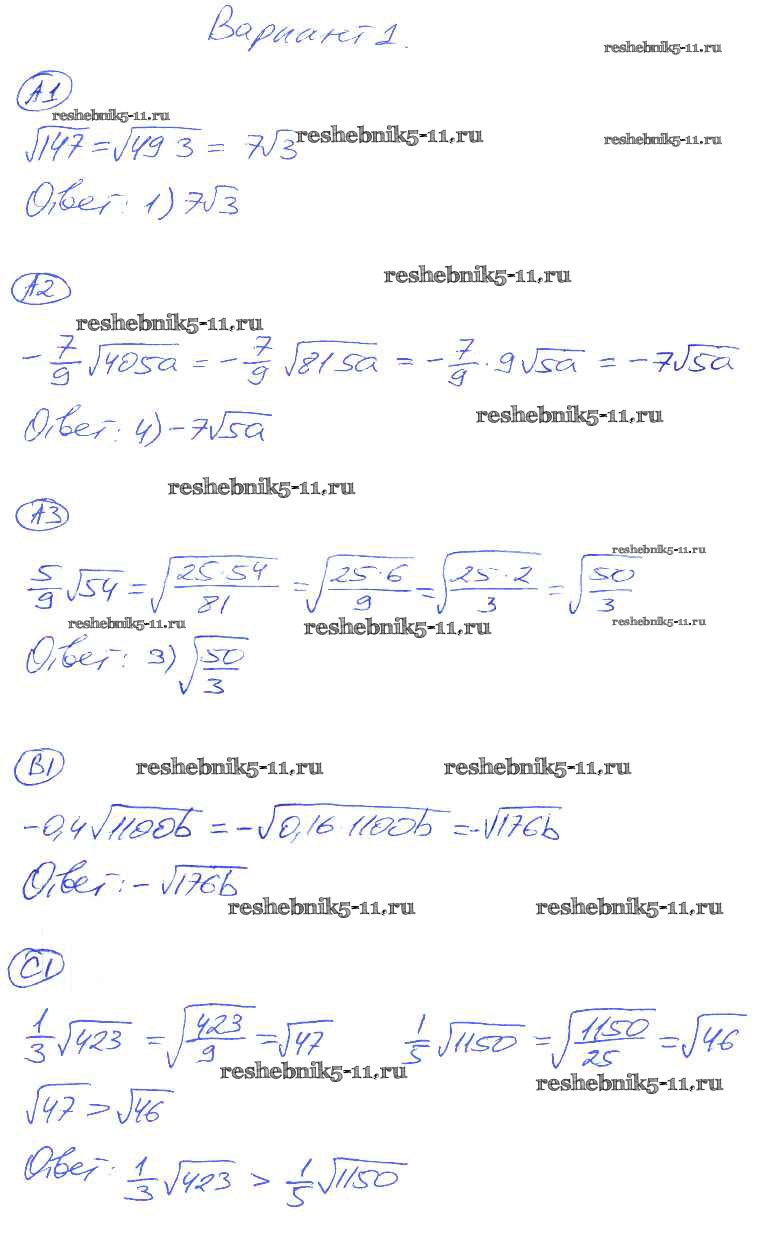 Вариант 1.
reshebnik5-11.ru
А1
reshebnik5-11.ru
√147 = √49 3 = 7√3
reshebnik5-11.ru
reshebnik5-11.ru
Ответ: 1) 7√3
reshebnik5-11.ru
А2
reshebnik5-11.ru
- 7/9 √405a = - 7/9 √81 5a = - 7/9 · 9√5a = -7√5a
Ответ: 4) -7√5a
reshebnik5-11.ru
reshebnik5-11.ru
А3
reshebnik5-11.ru
5/9 √54 = √(25·54/81) = √(25·6/9) = √(25·2/3) = √(50/3)
reshebnik5-11.ru
reshebnik5-11.ru
reshebnik5-11.ru
Ответ: 3) √(50/3)
В1
reshebnik5-11.ru
reshebnik5-11.ru
-0,4√1100b = -√0,16·1100b = -√176b
Ответ: -√176b
reshebnik5-11.ru
reshebnik5-11.ru
С1
1/3 √423 = √(423/9) = √47 1/5 √1150 = √(1150/25) = √46
reshebnik5-11.ru
reshebnik5-11.ru
√47 > √46
Ответ: 1/3 √423 > 1/5 √1150